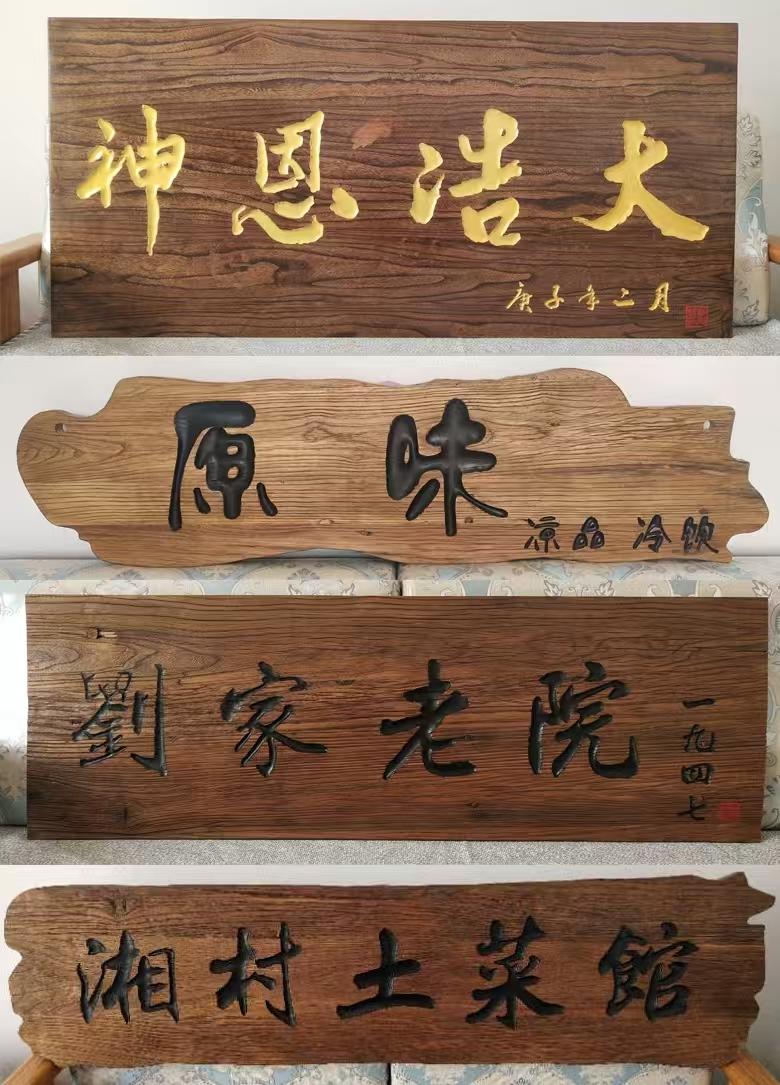 神恩浩大
庚子年二月
原味
凉品 冷饮
劉家老院
一九四七
湘村土菜館